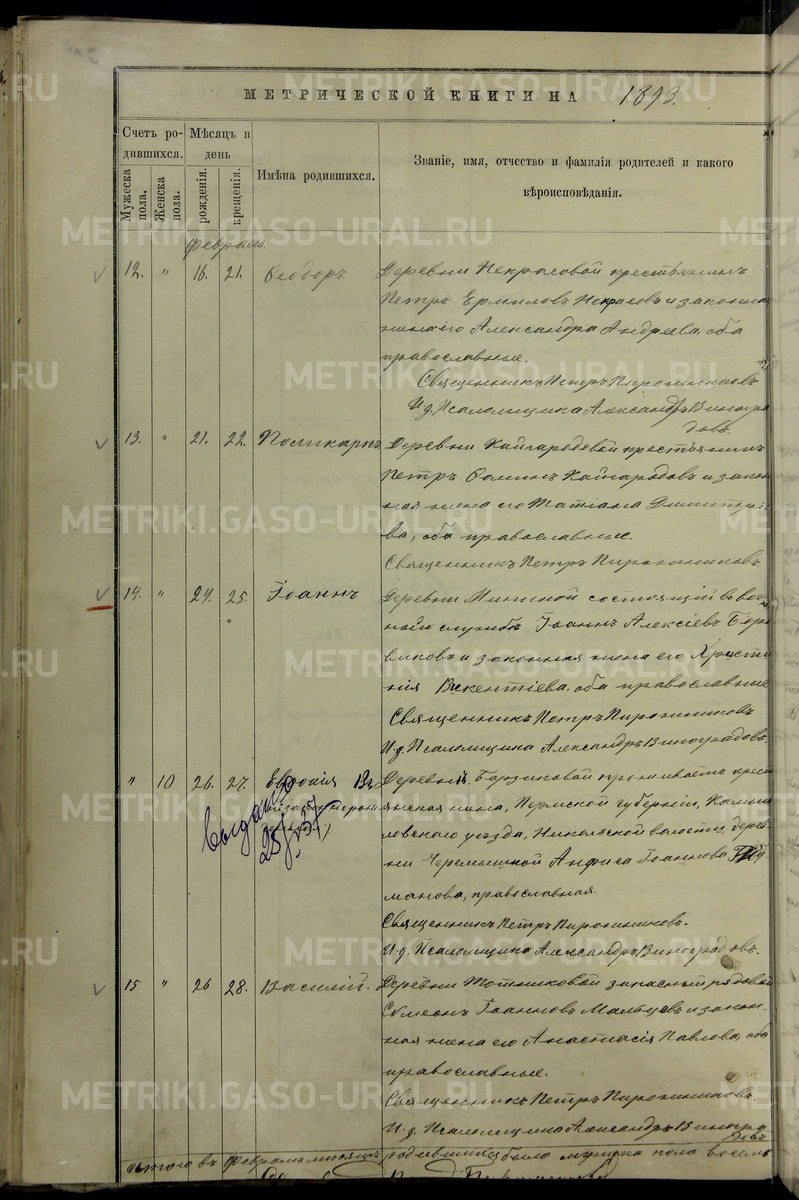 МЕТРИЧЕСКОЙ КНИГИ НА 1893.
Счетъ ро-
дившихся.
Мѣсяцъ и
день
Имѣна родившихся.
Званіе, имя, отчество и фамилія родителей и какого
вѣроисповѣданія.
Мужеска пола.
Женска пола.
рожденія.
крещенія.
Февраль.
12. " 16. 21. Ѳеодоръ
Деревни Некрасовой крестьянинъ
Петръ Ермиловъ Некрасовъ и законная
жена его Александра Андреева, оба
православные.
Священникъ Петръ Пирожниковъ
И.д. Псаломщика Александръ Виногра
довъ
13. " 21. 22. Поликарпъ
Деревни Кайгородовой крестьянинъ
Петръ Кайгородовъ и закон
ная жена его Татіана Димитріе
ва, оба православные.
Священникъ Петръ Пирожниковъ
14. " 24. 25. Іоаннъ
Деревни состоящій въ вое
ной службѣ Іоаннъ Алексіевъ
и законная жена его Христи
нія Викентіева, оба православные
Священникъ Петръ Пирожниковъ
И.д. Псаломщика Александръ Виноградовъ
" 10 26. 27. Евдокія
Деревни проживаетъ крест
янская жена, Пермской губерніи, Камыш
ловскаго уѣзда, Никольской волости дерев
ни Анфиса Іоаннова
манова, православная.
Священникъ Петръ Пирожниковъ.
И.д. Псаломщика Александръ Виноградовъ.
15 " 26 28. Василій.
Деревни запасный рядовой
Сѵмеонъ Іоанновъ Мальцевъ и закон-
ная жена его Анастасія Павлова, оба
православные.
Священникъ Петръ Пирожниковъ
И.д. Псаломщика Александръ Виногра
довъ
Итого въ Февралѣ мѣсяцѣ родившихся было мужска пола восемь
METRIKI.GASO-URAL.RU